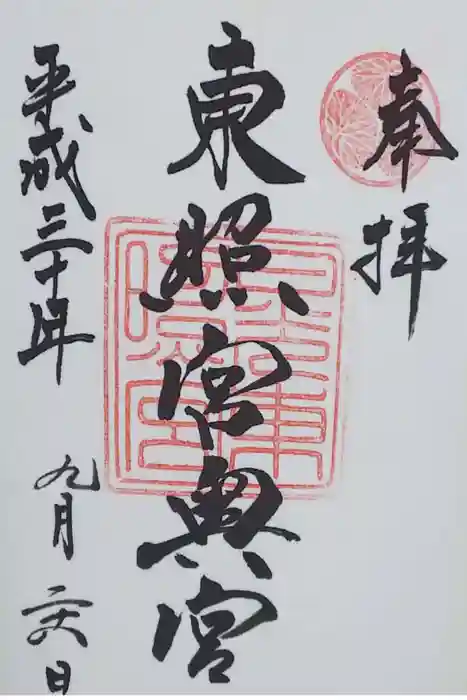 奉拝
東照宮奥宮
平成三十年
九月二六日